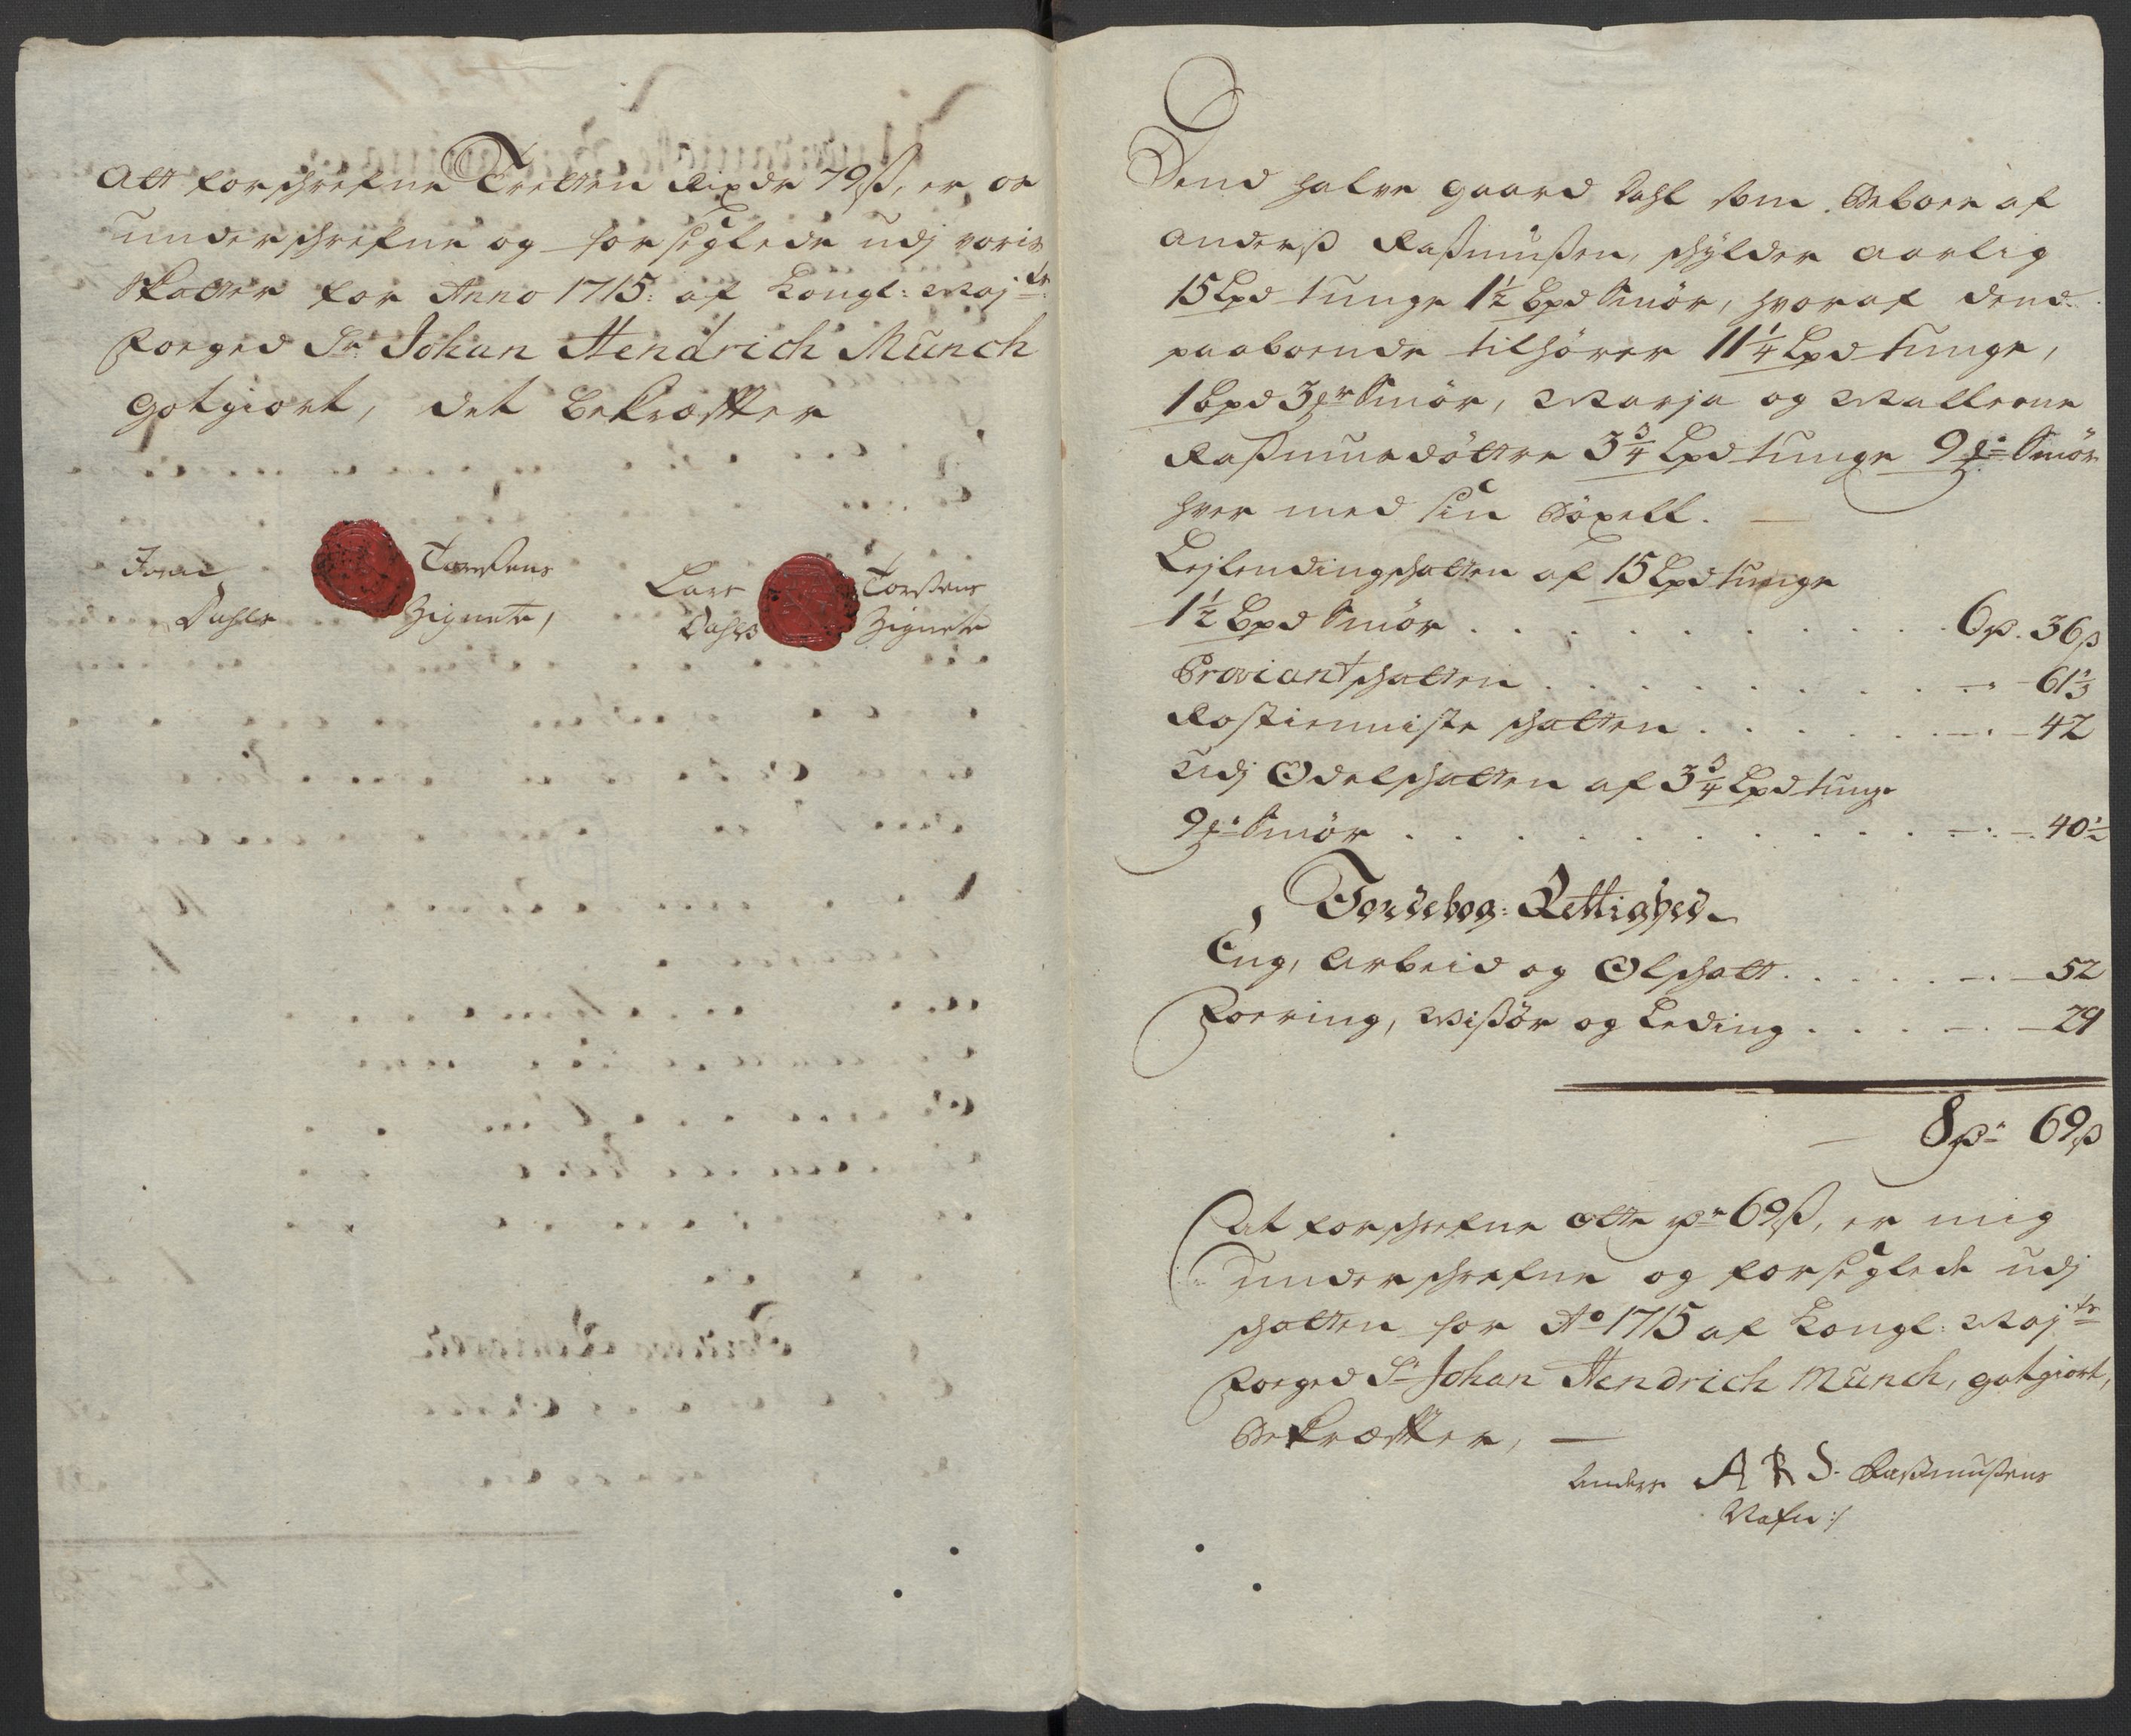 Att forschrefne Tretten Rixdr 79ß, er os
underschrefne og forseglede udj voris
Skatter for Anno 1715: af Kongl: Maj:ts
Foeged Sr: Johan Hendrich Münch
gotgiort, det bekræffter
Joen Torsens
Dahls Zignete,
Lars Torsens
Dahls Zignete
Dend halve gaard Dahl som beboer af
Anders Rasmusen, schylder aarlig
15 Lpd tunge 1½ Bpd Smör, hvoraf dend
paaboende tilhörer 11¼ Lpd tunge,
1 Bpd 3 Smör, Marja og Mallene
Rasmusdöttre 3¾ Lpd tunge 9 Smör
hver med sin böxell.
Lejlendingschatten af 15 Lpd tunge
1½ Bpd Smör . . . . . . . . . 6. 36ß
Proviantschatten . . . . . . . . — 61⅓
Rostienniste schatten . . . . . . — 42
Udj Odelschatten af 3¾ Lpd tunge
9 Smör . . . . . . . . . . — 40½
Jordebog: Rettighed
Eng, Arbeid og Olschatt . . . . . — 52
Foering, Visöer og Leding . . . . — 29
8 69ß
At forschrefne otte 69ß, er mig
underschrefne og forseglede udj
schatten for Ao 1715 af Kongl: Maj:ts
Foeged Sr Johan Hendrich Münch, gotgiort,
Bekræffter, —
Anders A R S. Rasmusens
Nafn:/